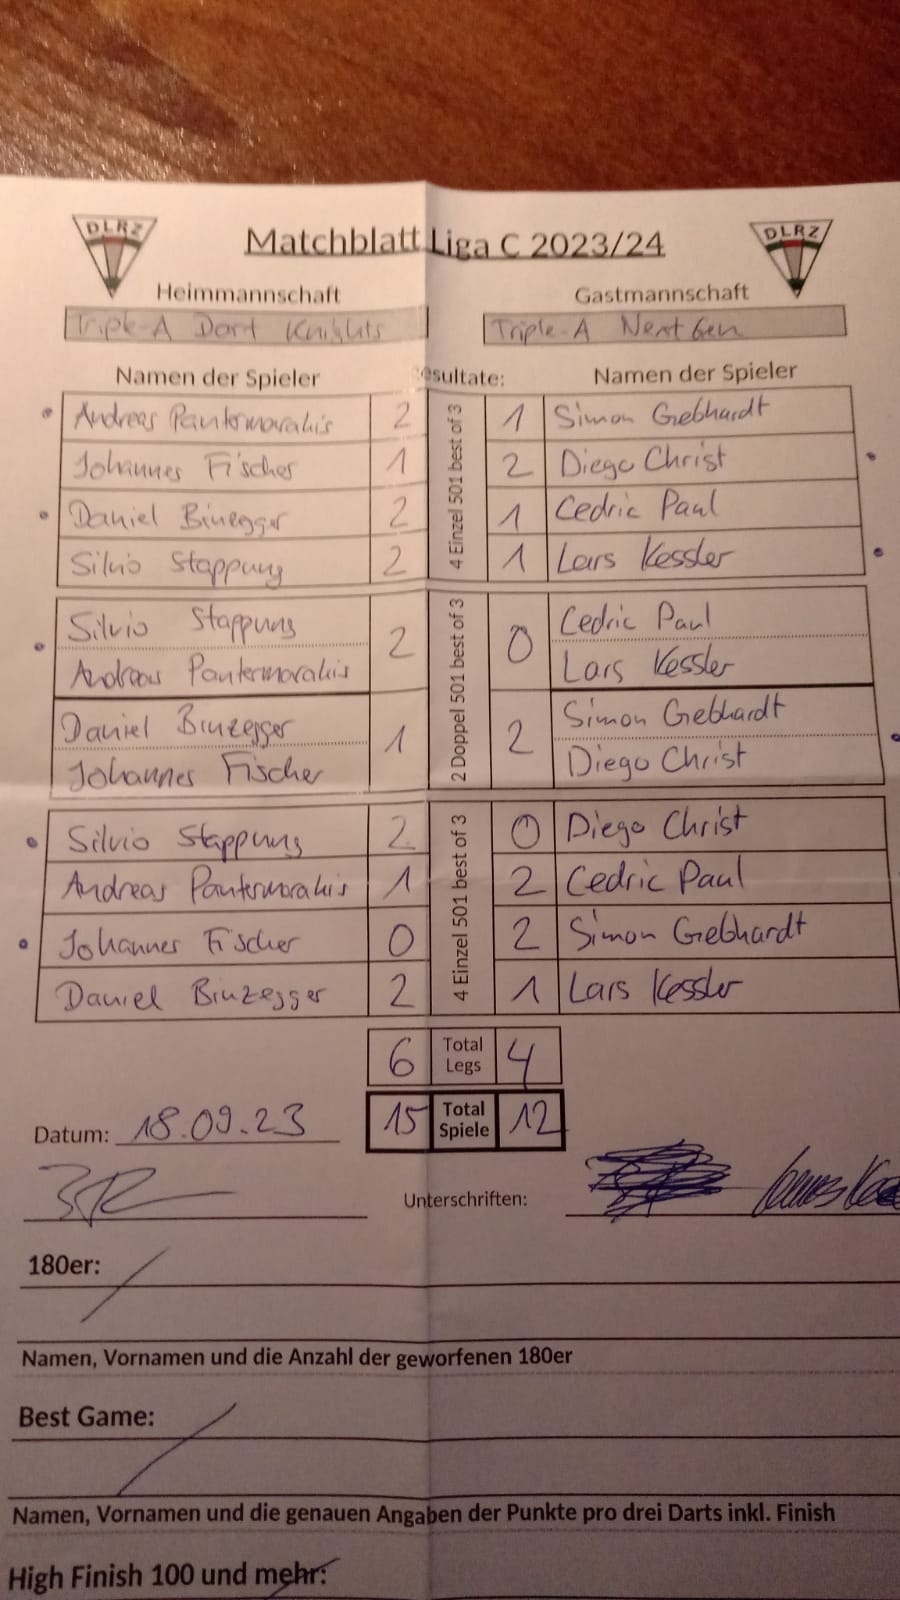 DLRZ Matchblatt Liga C 2023/24 DLRZ
Heimmannschaft Gastmannschaft
Triple-A Dart Knights Triple-A Next Gen
Namen der Spieler esultate: Namen der Spieler
4 Einzel 501 best of 3
Andreas Pantermarakis 2 1 Simon Gebhardt
Johannes Fischer 1 2 Diego Christ
Daniel Binzegger 2 1 Cedric Paul
Silvio Stappung 2 1 Lars Kessler
2 Doppel 501 best of 3
Silvio Stappung 2 0 Cedric Paul
Andreas Pantermarakis Lars Kessler
Daniel Binzegger 1 2 Simon Gebhardt
Johannes Fischer Diego Christ
4 Einzel 501 best of 3
Silvio Stappung 2 0 Diego Christ
Andreas Pantermarakis 1 2 Cedric Paul
Johannes Fischer 0 2 Simon Gebhardt
Daniel Binzegger 2 1 Lars Kessler
6 Total Legs 4
Datum: 18.09.23 15 Total Spiele 12
Unterschriften:
180er:
Namen, Vornamen und die Anzahl der geworfenen 180er
Best Game:
Namen, Vornamen und die genauen Angaben der Punkte pro drei Darts inkl. Finish
High Finish 100 und mehr: